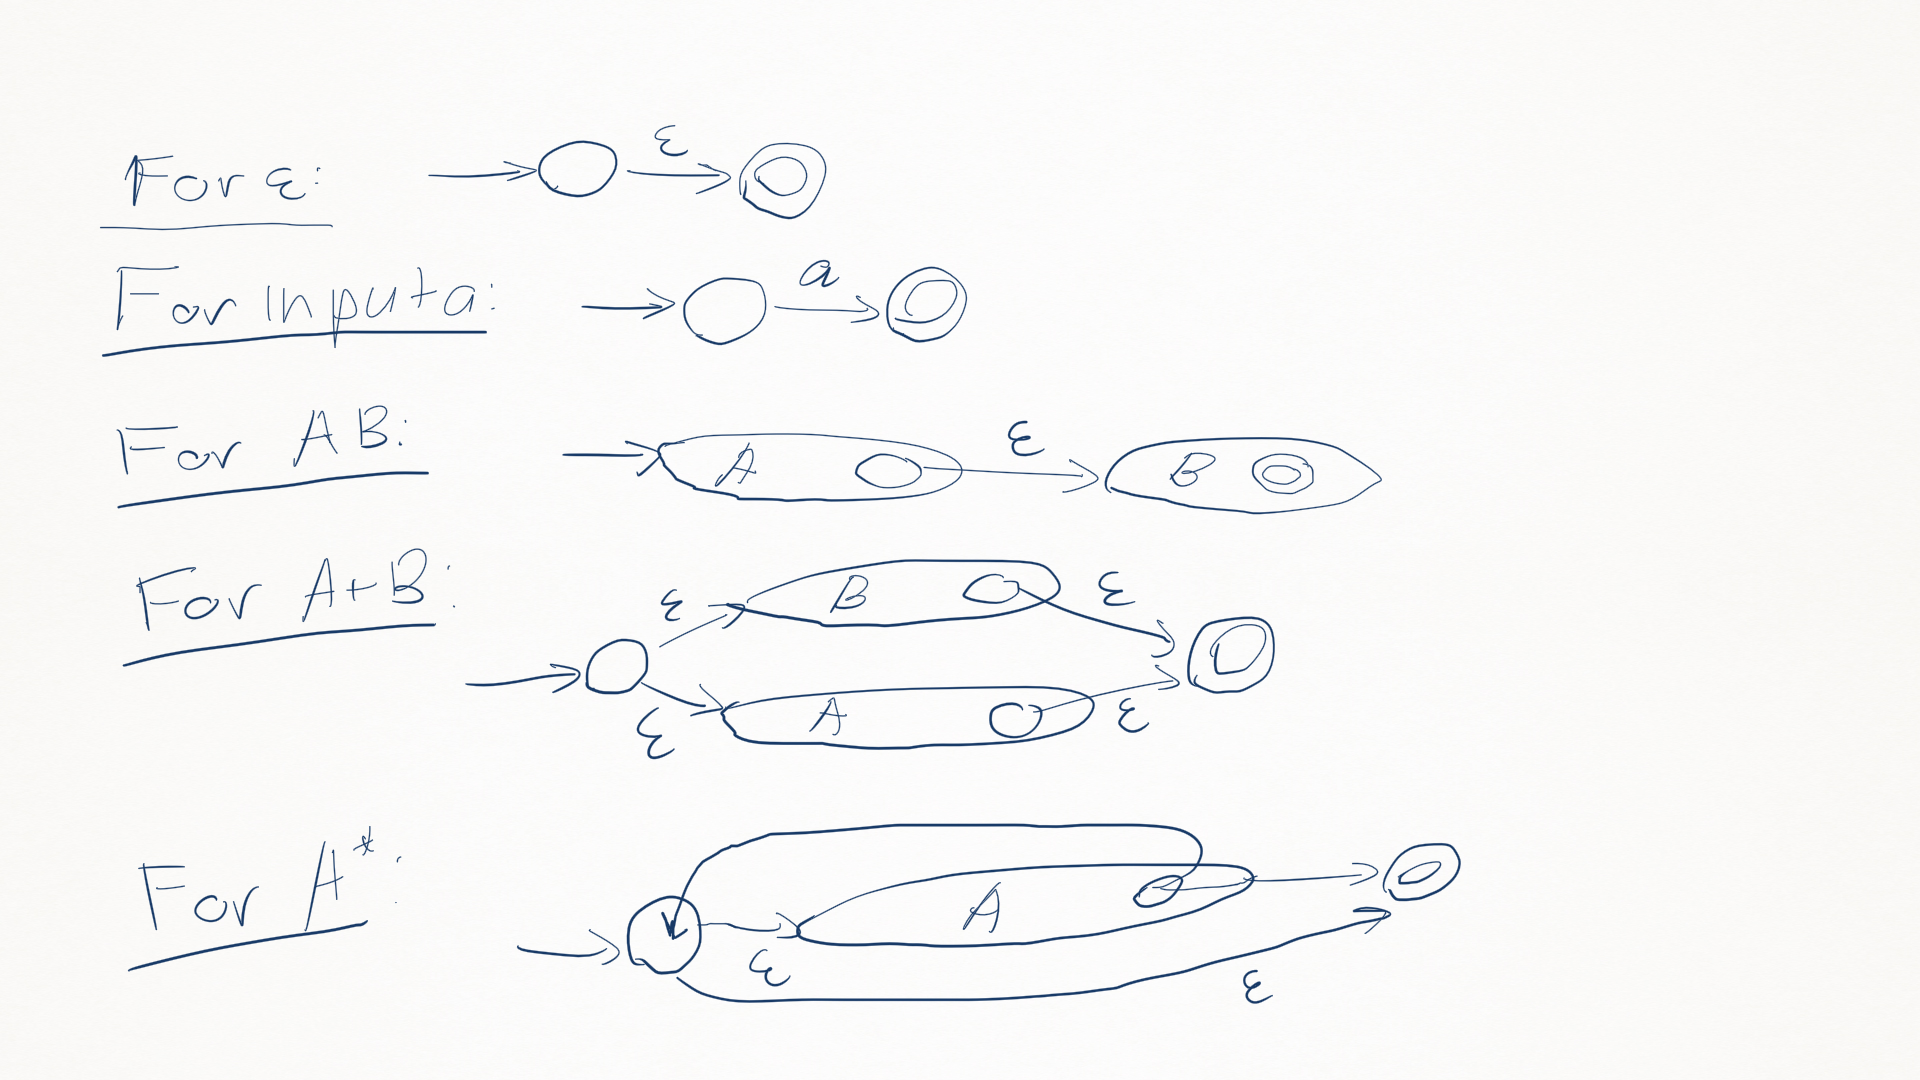 For ε: ε
For input a: a
For AB: A ε B
For A+B: ε B ε
ε A ε
For A*: A
ε ε